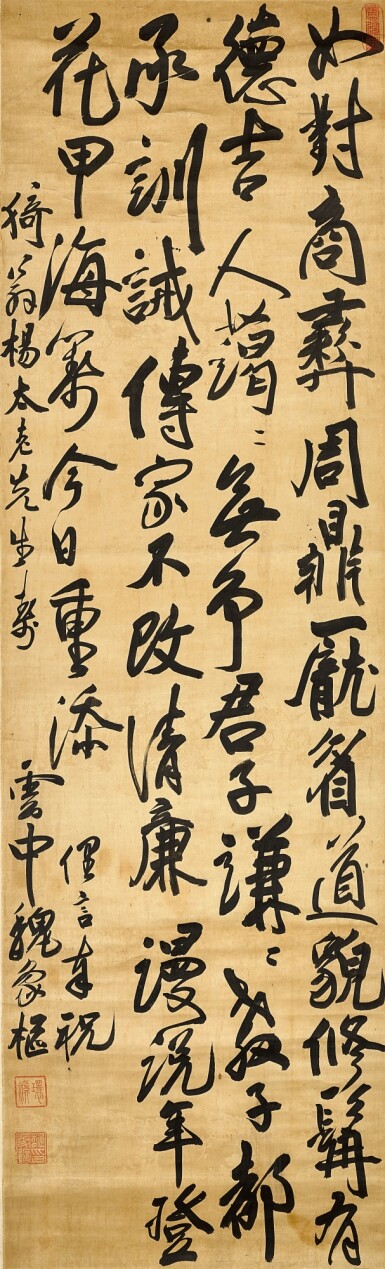 如對商彝周鼎龐眉道貌修髯有
德吉人藹〻無爭君子謙〻教子都
承訓誡傳家不改清廉漫說年登
花甲海籌今日重添 俚言奉祝
猗翁楊太老先生壽 雲中魏象樞